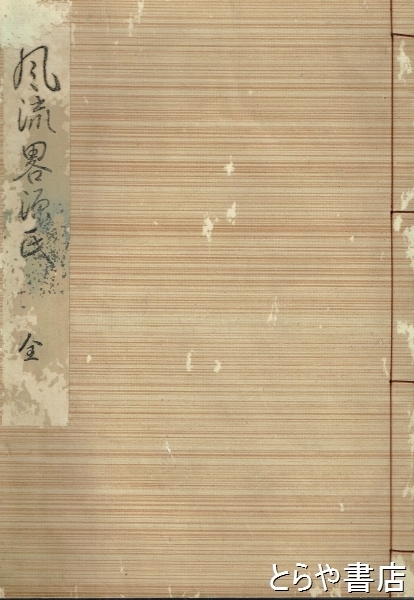 風流畧源氏 全
とらや書店